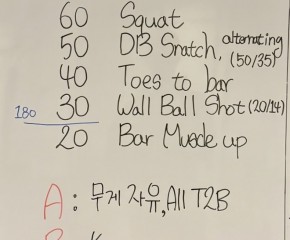 60 Squat
50 DB Snatch, alternating (50/35)
40 Toes to bar
180 30 Wall Ball Shot (20/14)
20 Bar Muscle up
A: 무게 자유, All T2B